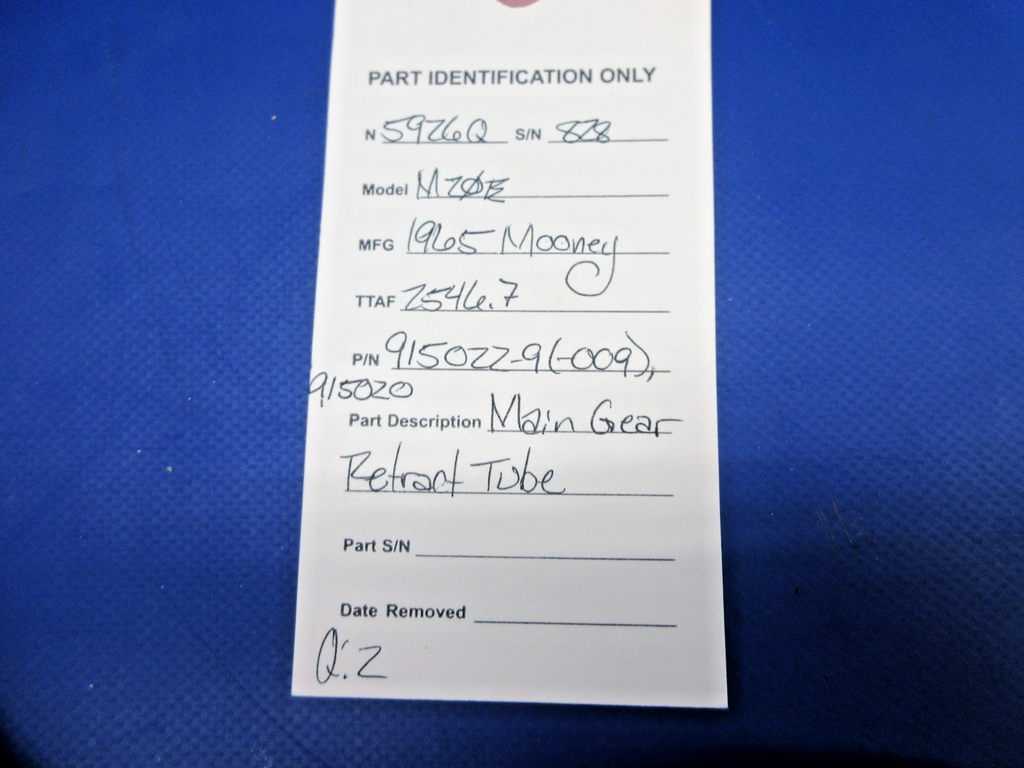 PART IDENTIFICATION ONLY
N 5926Q S/N 828
Model M20E
MFG 1965 Mooney
TTAF 2546.7
P/N 915022-9(-009),
915020
Part Description Main Gear
Retract Tube
Part S/N
Date Removed
Q:2